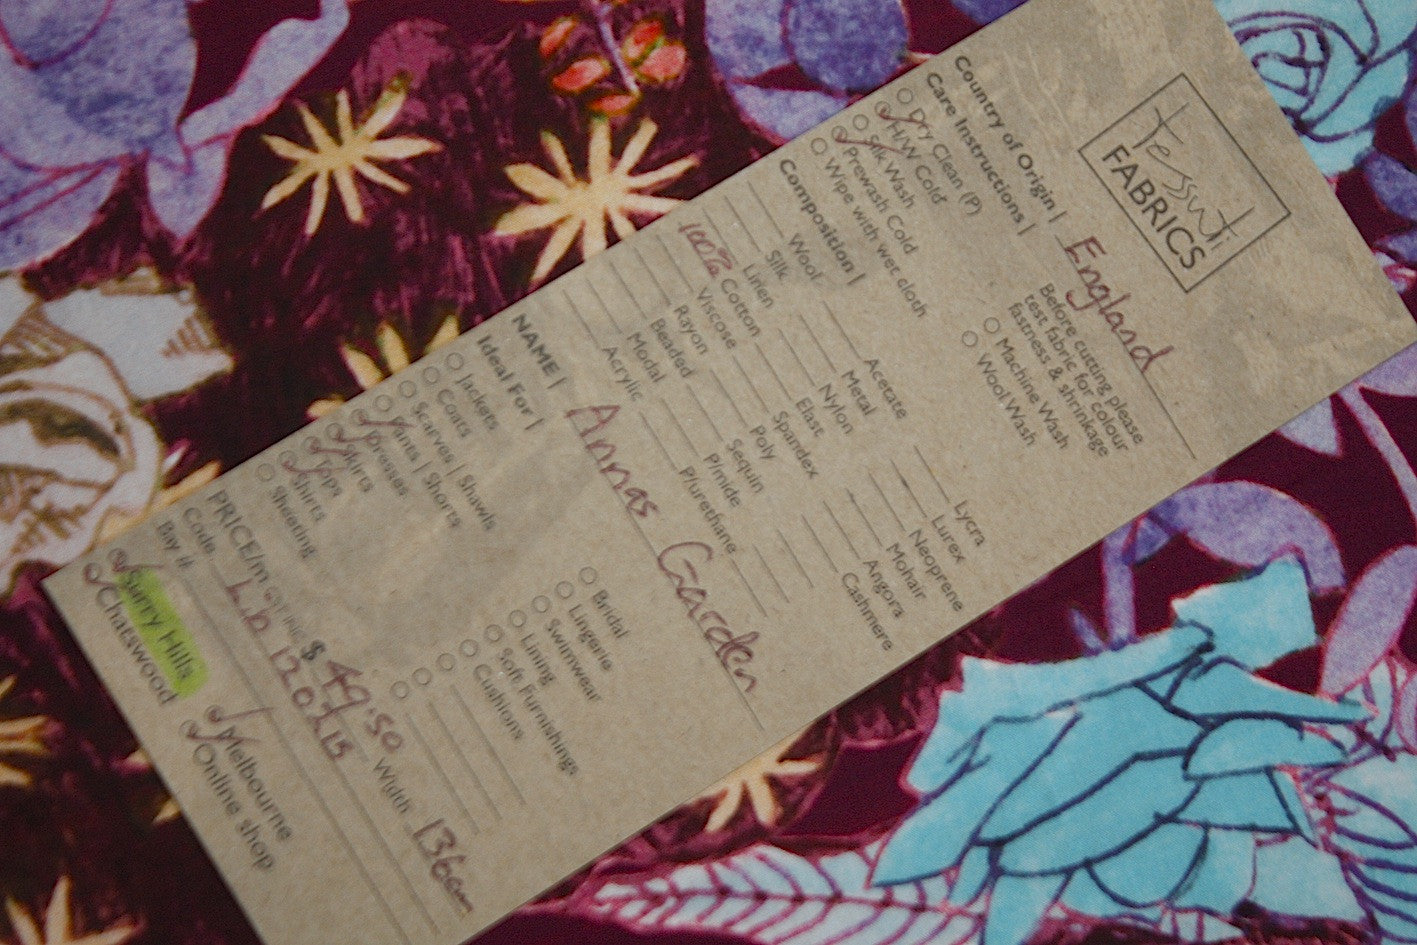 Tessuti
FABRICS
Country of Origin | England
Care Instructions |
Before cutting please
test fabric for colour
fastness & shrinkage
Dry Clean (P)
H/W Cold
Silk Wash
Prewash Cold
Wipe with wet cloth
Machine Wash
Wool Wash
Composition |
Wool Acetate Lycra
Silk Metal Lurex
Linen Nylon Neoprene
100% Cotton Elast Mohair
Viscose Spandex Angora
Rayon Poly Cashmere
Beaded Sequin
Modal P/mide
Acrylic P/urethane
NAME | Annas Garden
Ideal For |
Jackets Bridal
Coats Lingerie
Scarves | Shawls Swimwear
Pants | Shorts Lining
Dresses Soft Furnishings
Skirts Cushions
Tops
Shirts
Sheeting
PRICE/m GST INC $ 49.50 Width 136cm
Code
Bay #
Surry Hills Melbourne
Chatswood Online shop